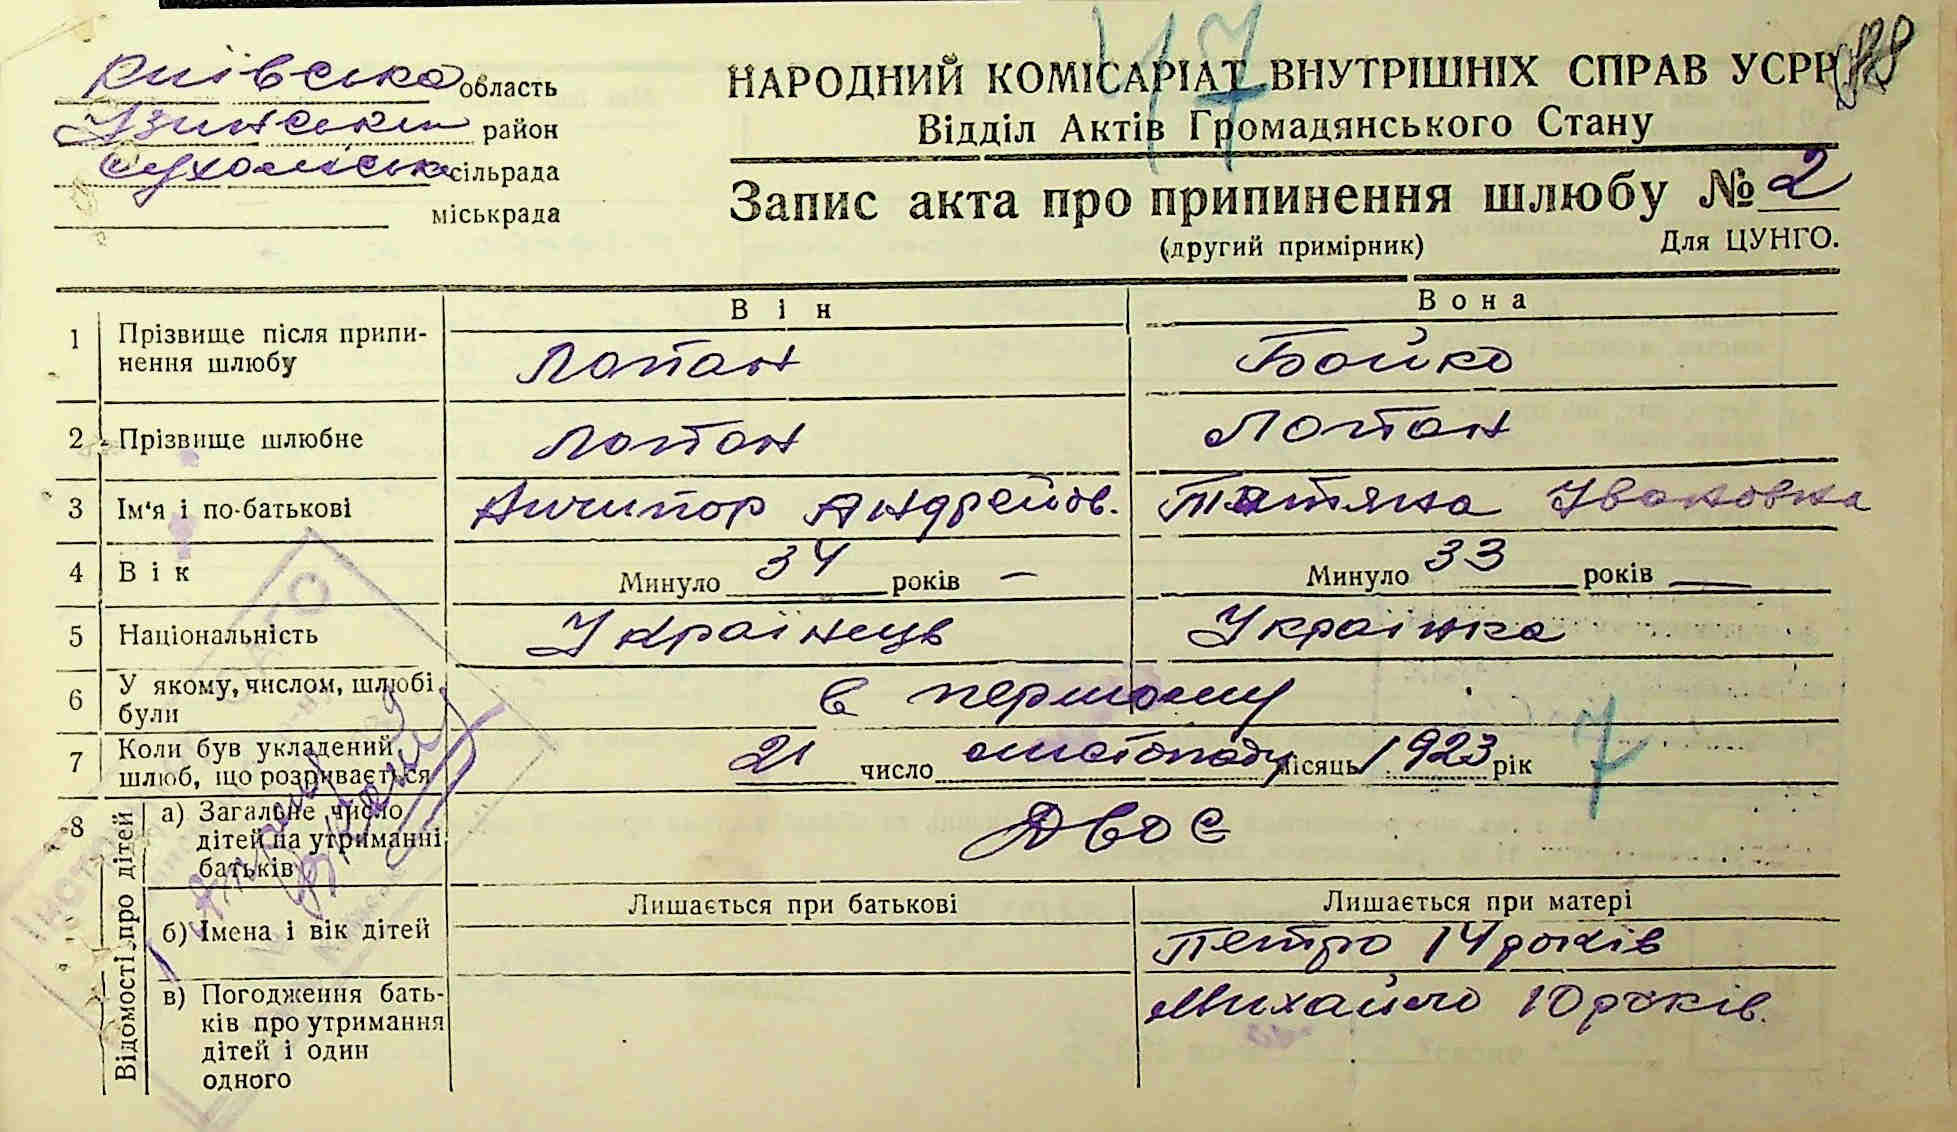 47
188
Київська область
Узинський район
Сухоліська сільрада
міськрада
НАРОДНИЙ КОМІСАРІАТ ВНУТРІШНІХ СПРАВ УСРР
Відділ Актів Громадянського Стану
Запис акта про припинення шлюбу № 2
(другий примірник) Для ЦУНГО.
Він Вона
1 Прізвище після припи-
нення шлюбу Лопан Бойко
2 Прізвище шлюбне Лопан Лопан
3 Ім'я і по-батькові Ничипор Андрейов. Татяна Івановна
4 Вік Минуло 34 років — Минуло 33 років —
5 Національність Українець Українка
6 У якому, числом, шлюбі
були в першому
7 Коли був укладений
шлюб, що розривається 21 число листопаду місяць 1923 рік
7
8 Відомості про дітей
а) Загальне число
дітей на утриманні
батьків Двоє
Лишається при батькові Лишається при матері
б) Імена і вік дітей Петро 14 років
в) Погодження бать-
ків про утримання
дітей і один
одного
Михайло 10 років.